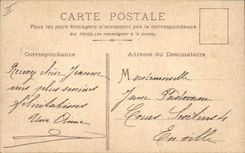 CARTE POSTALE
Tous les pays étrangers n'acceptent pas la correspondance
au recto (se renseigner à la poste)
Correspondance
Adresse du Destinataire
Recevez Jeanne
mes plus sincères
félicitations
Une Amie
Mademoiselle
Jane
Cours
En ville